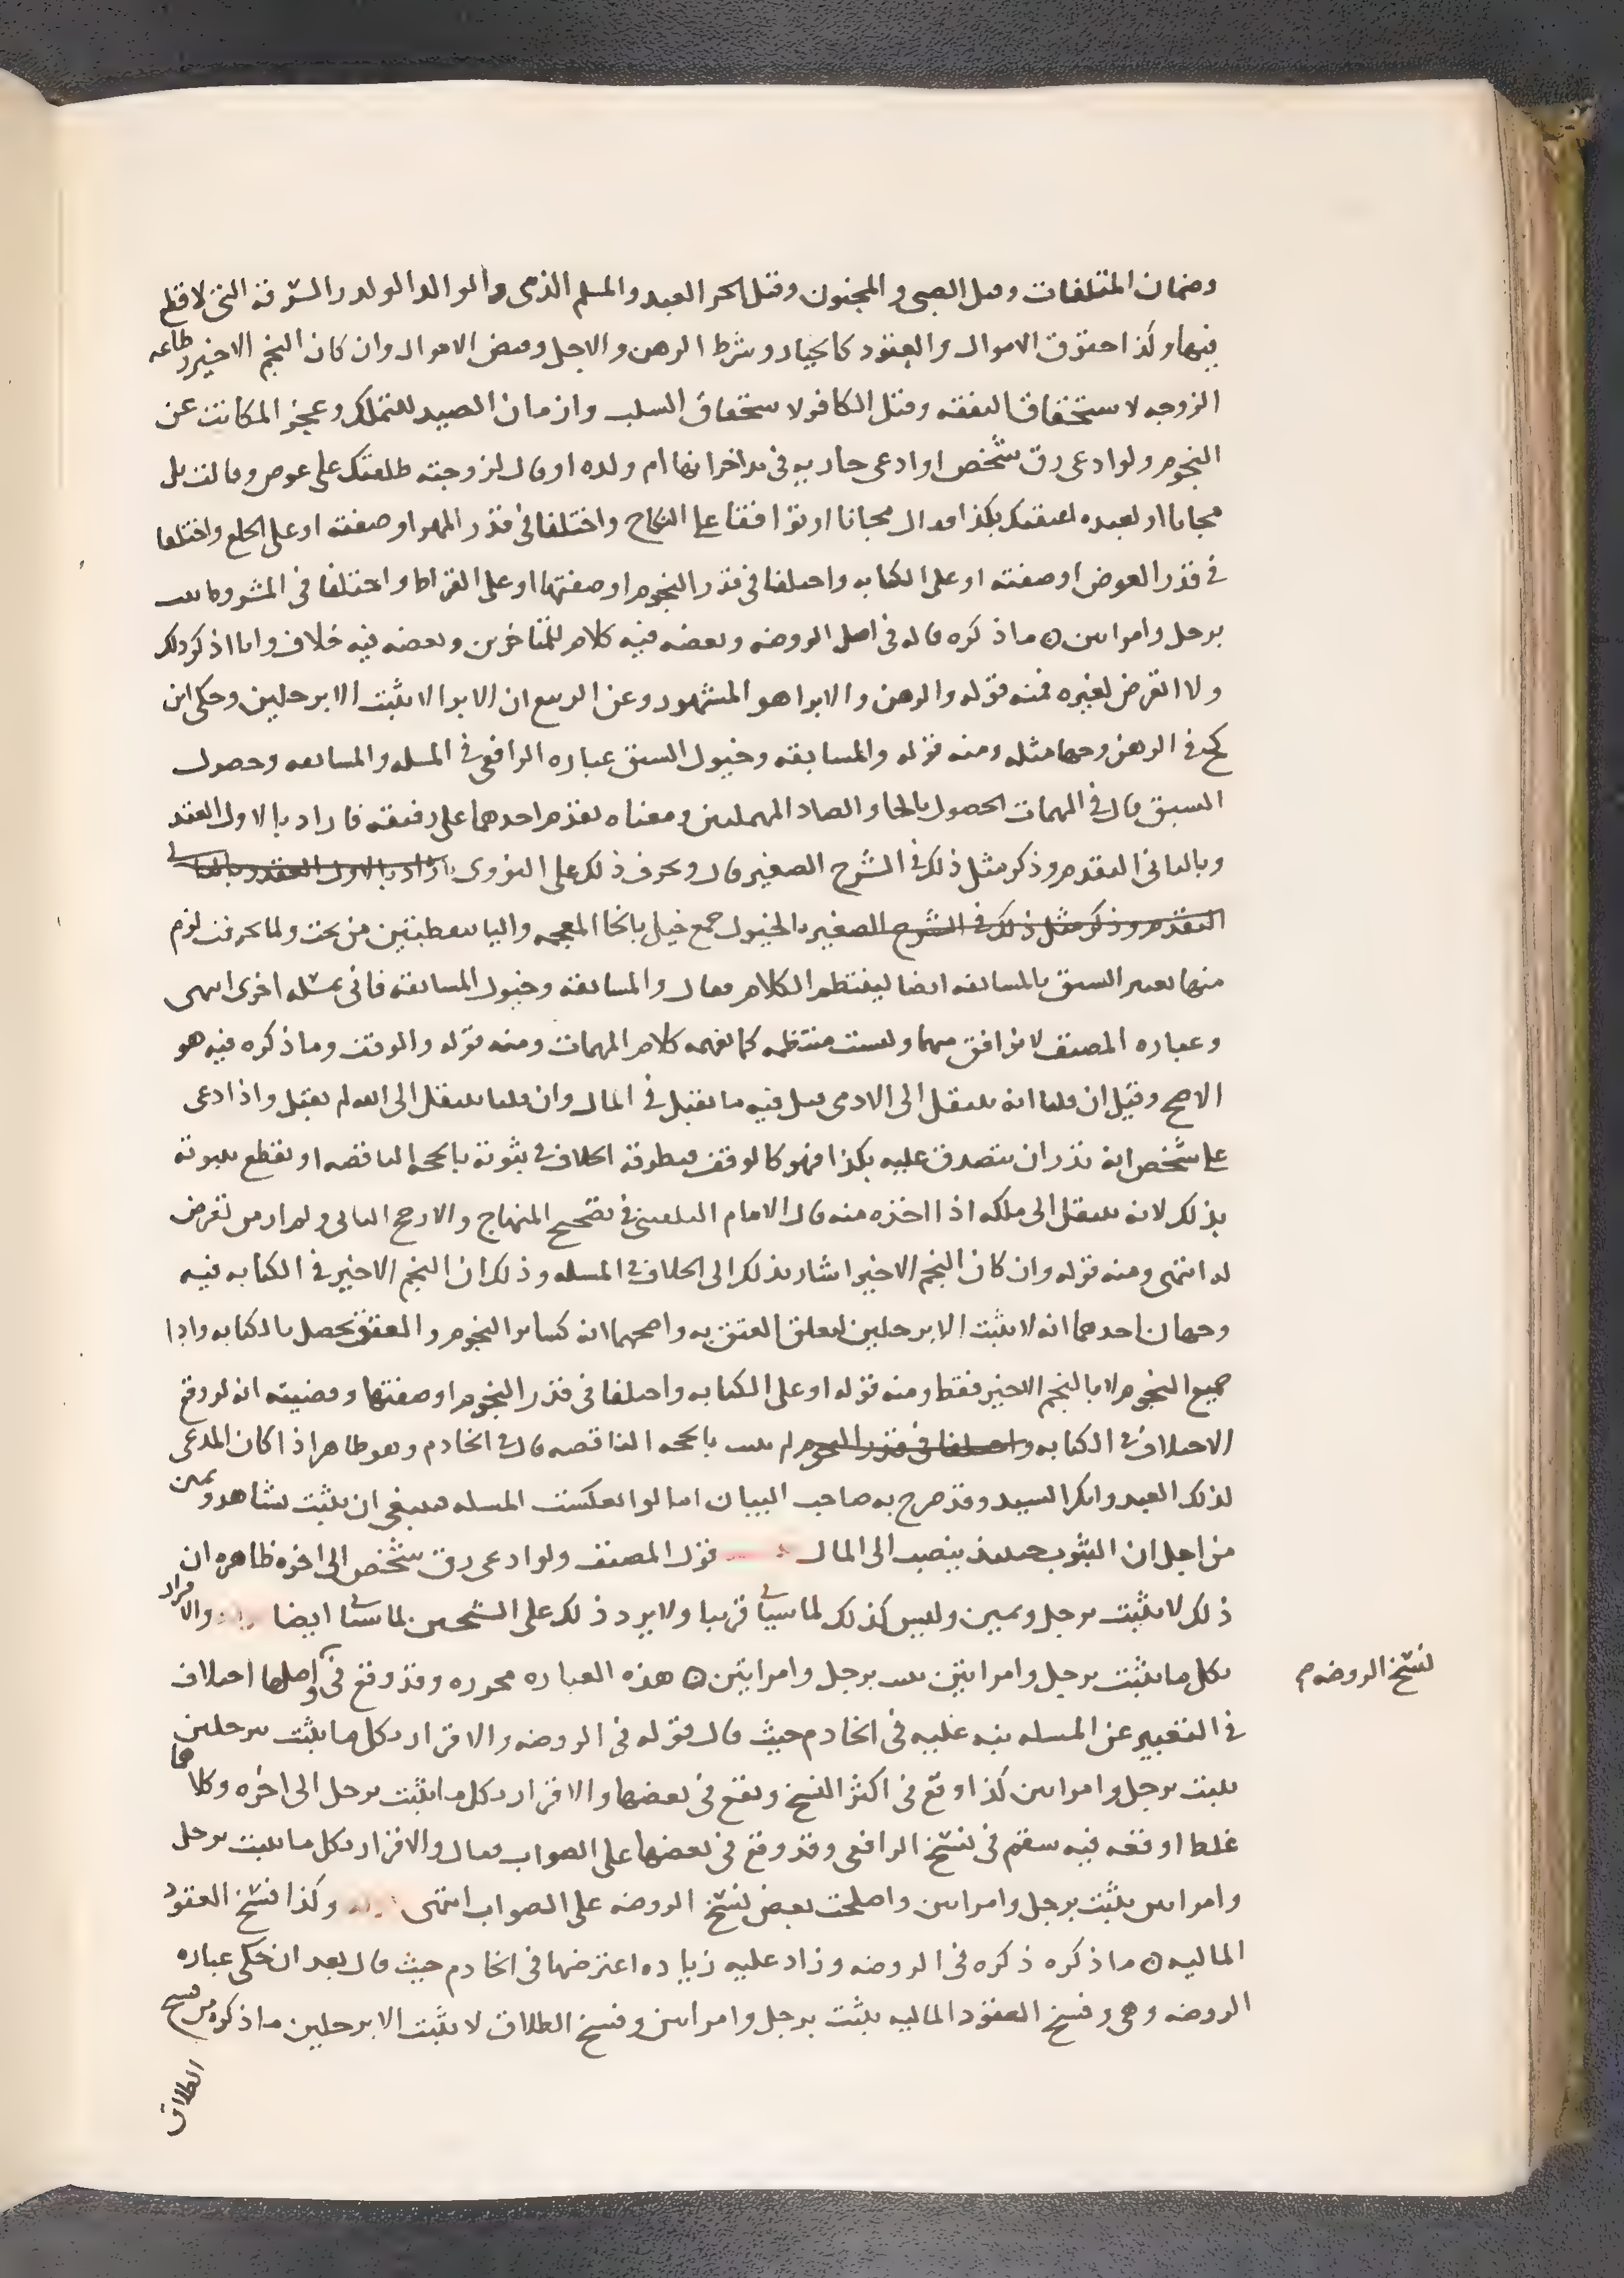 وضمان المتلفات وقتل الصبي والمجنون وقتل الحر العبد والمسلم الذمي والوالد الولد والسرقة التي لا قطع
فيها وكذا حقوق الاموال والعقود كالخيار وشرط الرهن والاجل وقبض الاموال وان كان النجم الاخير وطاعه
الزوجه لاستحقاق النفقه وقتل الكافر لاستحقاق السلب وازمان الصيد للتملك وعجز المكاتب عن
النجوم ولو ادعى رق شخص او ادعى جاريه في يد اخر انها ام ولده او قال لزوجته طلقتك على عوض وقالت بل
مجانا او لعبده اعتقتك بكذا فقال مجانا او توافقا على النكاح واختلفا في قدر المهر او صفته او على الخلع واختلفا
في قدر العوض او صفته او على الكتابه واختلفا في قدر النجوم او صفتها او على القراض واختلفا في المشروط ثبت
برجل وامراتين ه ما ذكره قاله في اصل الروضه وبعضه فيه كلام للمتاخرين وبعضه فيه خلاف وانا اذكر ذلك
ولا اتعرض لغيره فمنه قوله والرهن والابرا هو المشهور وعن الربيع ان الابرا لا يثبت الا برجلين وحكى ابن
كج في الرهن وجها مثله ومنه قوله والمسابقه وخيول السبق عباره الرافعي في المسله والمسابقه وحصول
السبق قال في المهمات الحصول بالحا والصاد المهملتين ومعناه تقدم احدهما على رفيقه فاراد بالاول العقد
وبالثاني التقدم وذكر مثل ذلك في الشرح الصغير قال وتحرف ذلك على النووي فاراد بالاول العقد وبالثاني
التقدم وذكر مثل ذلك في الشرح الصغير بالخيول جمع خيل بالخا المعجمه واليا بنقطتين من تحت ولما تحرفت لزم
منها تعبير السبق بالمسابقه ايضا لينتظم الكلام فقال والمسابقه وخيول المسابقه فاتى بمسله اخرى انتهى
وعباره المصنف لا توافق منهما وليست منتظمه كما يفهمه كلام المهمات ومنه قوله والوقف وما ذكره فيه هو
الاصح وقيل ان قلنا انه ينتقل الى الادمي قبل فيه ما يقبل في المال وان قلنا ينتقل الى الله لم يقبل واذا ادعى
على شخص انه نذر ان يتصدق عليه بكذا فهو كالوقف فيطرقه الخلاف في ثبوته بالحجه الناقصه او نقطع بثبوته
بذلك لانه ينتقل الى ملكه اذا اخذه منه قال الامام البلقيني في تصحيح المنهاج والارجح الثاني ولم ار من تعرض
له انتهى ومنه قوله وان كان النجم الاخير اشار بذلك الى الخلاف في المسله وذلك ان النجم الاخير في الكتابه فيه
وجهان احدهما انه لا يثبت الا برجلين لتعلق العتق به واصحهما انه كساير النجوم والعتق يحصل بالكتابه وادا
جميع النجوم لا بالنجم الاخير فقط ومنه قوله او على الكتابه واختلفا في قدر النجوم او صفتها وقضيته انه لو وقع
الاختلاف في الكتابه واختلفا في قدر النجوم لم يثبت بالحجه الناقصه قال في الخادم وهو ظاهر اذا كان المدعي
لذلك العبد وانكر السيد وقد صرح به صاحب البيان اما لو انعكست المسله فينبغي ان يثبت بشاهد ويمين
من اجل ان الثبوت حينئذ ينصب الى المال قول المصنف ولو ادعى رق شخص الى اخره ظاهره ان
ذلك لا يثبت برجل ويمين وليس كذلك لما سياتي قريبا ولا يرد ذلك على الشيخين لما سياتي ايضا والاقرار
بكل ما يثبت برجل وامراتين يثبت برجل وامراتين ه هذه العباره محرره وقد وقع في واصلها اختلاف
نسخ الروضه م
في التعبير عن المسله نبه عليه في الخادم حيث قال قوله في الروضه والاقرار بكل ما يثبت برجلين
يثبت برجل وامراتين كذا وقع في اكثر النسخ ويقع في بعضها والاقرار بكل ما يثبت برجل الى اخره وكلاهما
غلط اوقعه فيه سقم في نسخ الرافعي وقد وقع في بعضها على الصواب فقال والاقرار بكل ما يثبت برجل
وامراتين يثبت برجل وامراتين واصلحت بعض نسخ الروضه على الصواب انتهى وكذا فسخ العقود
الماليه ه ما ذكره ذكره في الروضه وزاد عليه زياده اعترضها في الخادم حيث قال بعد ان حكى عباره
الروضه وهي وفسخ العقود الماليه يثبت برجل وامراتين وفسخ الطلاق لا يثبت الا برجلين ما ذكره من فسخ
الطلاق